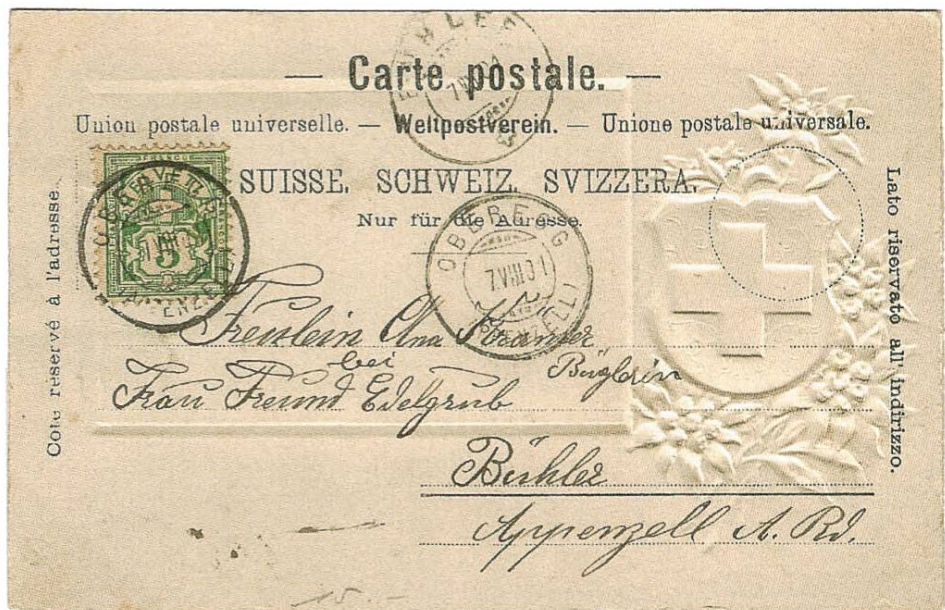 BÜHLER
— Carte postale. —
Union postale universelle. — Weltpostverein. — Unione postale universale.
SUISSE. SCHWEIZ. SVIZZERA.
Nur für die Adresse.
Côté réservé à l'adresse.
Lato riservato all' indirizzo.
FRANCO
5
OBEREGG
7.VIII.01
(APPENZELL)
OBEREGG
7.VIII.01
(APPENZELL)
Freulein Ana
bei Büglerin
Frau Freund Edelgrub
Bühler
Appenzell A. Rd.
15.-